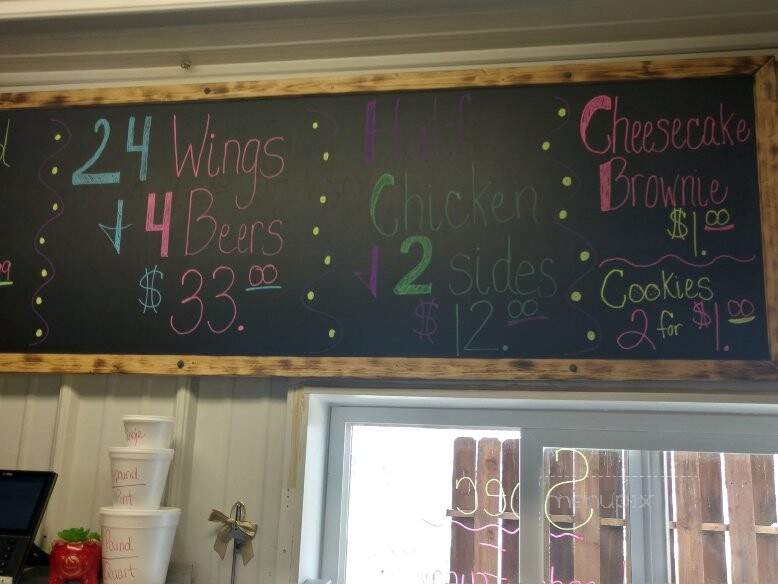 24 Wings
↓ 4 Beers
$33.00
Half
Chicken
↓ 2 sides
$12.00
Cheesecake
Brownie
$1.00
Cookies
2 for $1.00
Pint
Quart
menupix